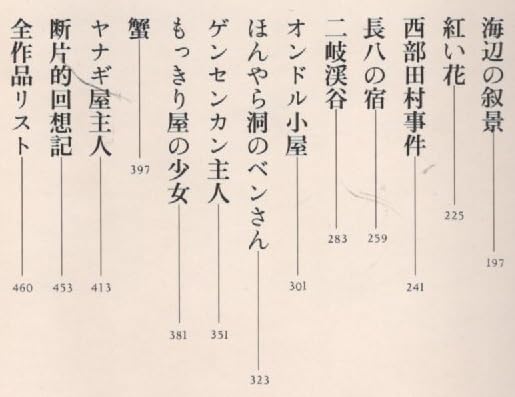 海辺の叙景 197
紅い花 225
西部田村事件 241
長八の宿 259
二岐渓谷 283
オンドル小屋 301
ほんやら洞のベンさん 323
ゲンセンカン主人 351
もっきり屋の少女 381
蟹 397
ヤナギ屋主人 413
断片的回想記 453
全作品リスト 460